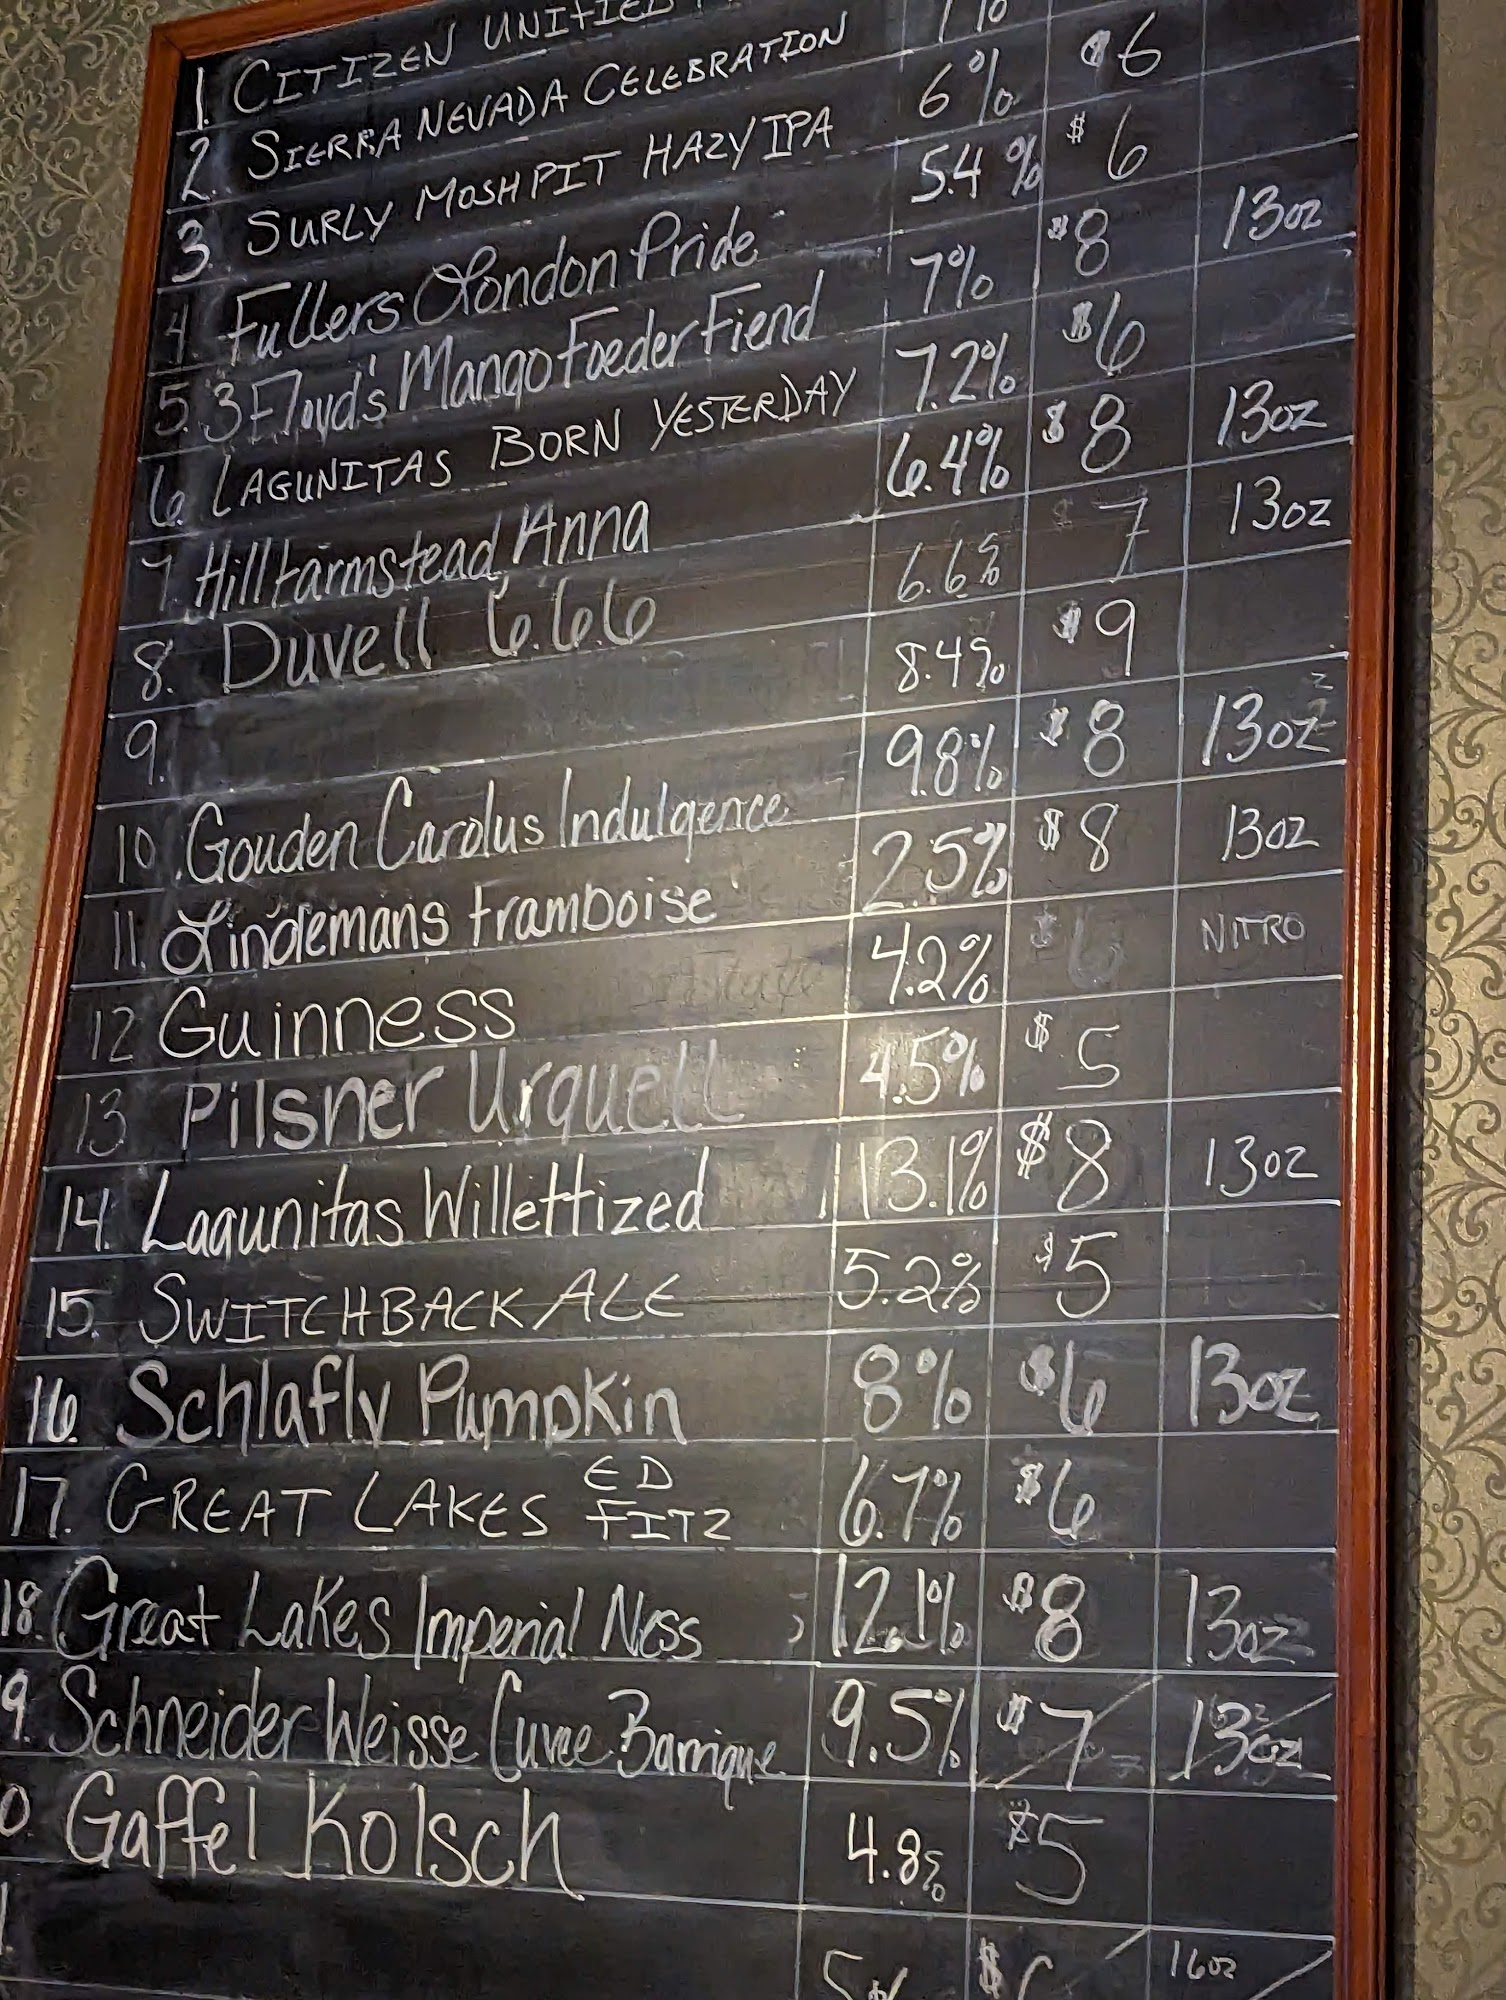 1. CITIZEN UNIFIED
2. SIERRA NEVADA CELEBRATION
3. SURLY MOSHPIT HAZY IPA 6% $6
4. Fullers London Pride 5.4% $6
5. 3 Floyd's Mango Foeder Fiend 7% $8 13oz
6. LAGUNITAS BORN YESTERDAY 7.2% $6
7. Hill Farmstead Anna 6.4% $8 13oz
8. Duvell 6.66 6.6% $7 13oz
9. 8.4% $9
10. Gouden Carolus Indulgence 9.8% $8 13oz
11. Lindemans framboise 2.5% $8 13oz
12 Guinness 4.2% $6 NITRO
13 Pilsner Urquell 4.5% $5
14. Lagunitas Willettized 13.1% $8 13oz
15. SWITCHBACK ALE 5.2% $5
16. Schlafly Pumpkin 8% $6 13oz
17. GREAT LAKES ED FITZ 6.7% $6
18. Great Lakes Imperial Ness 12.1% $8 13oz
9. Schneider Weisse Cuvee Barrique 9.5% $7 13oz
0 Gaffel Kolsch 4.8% $5
16oz